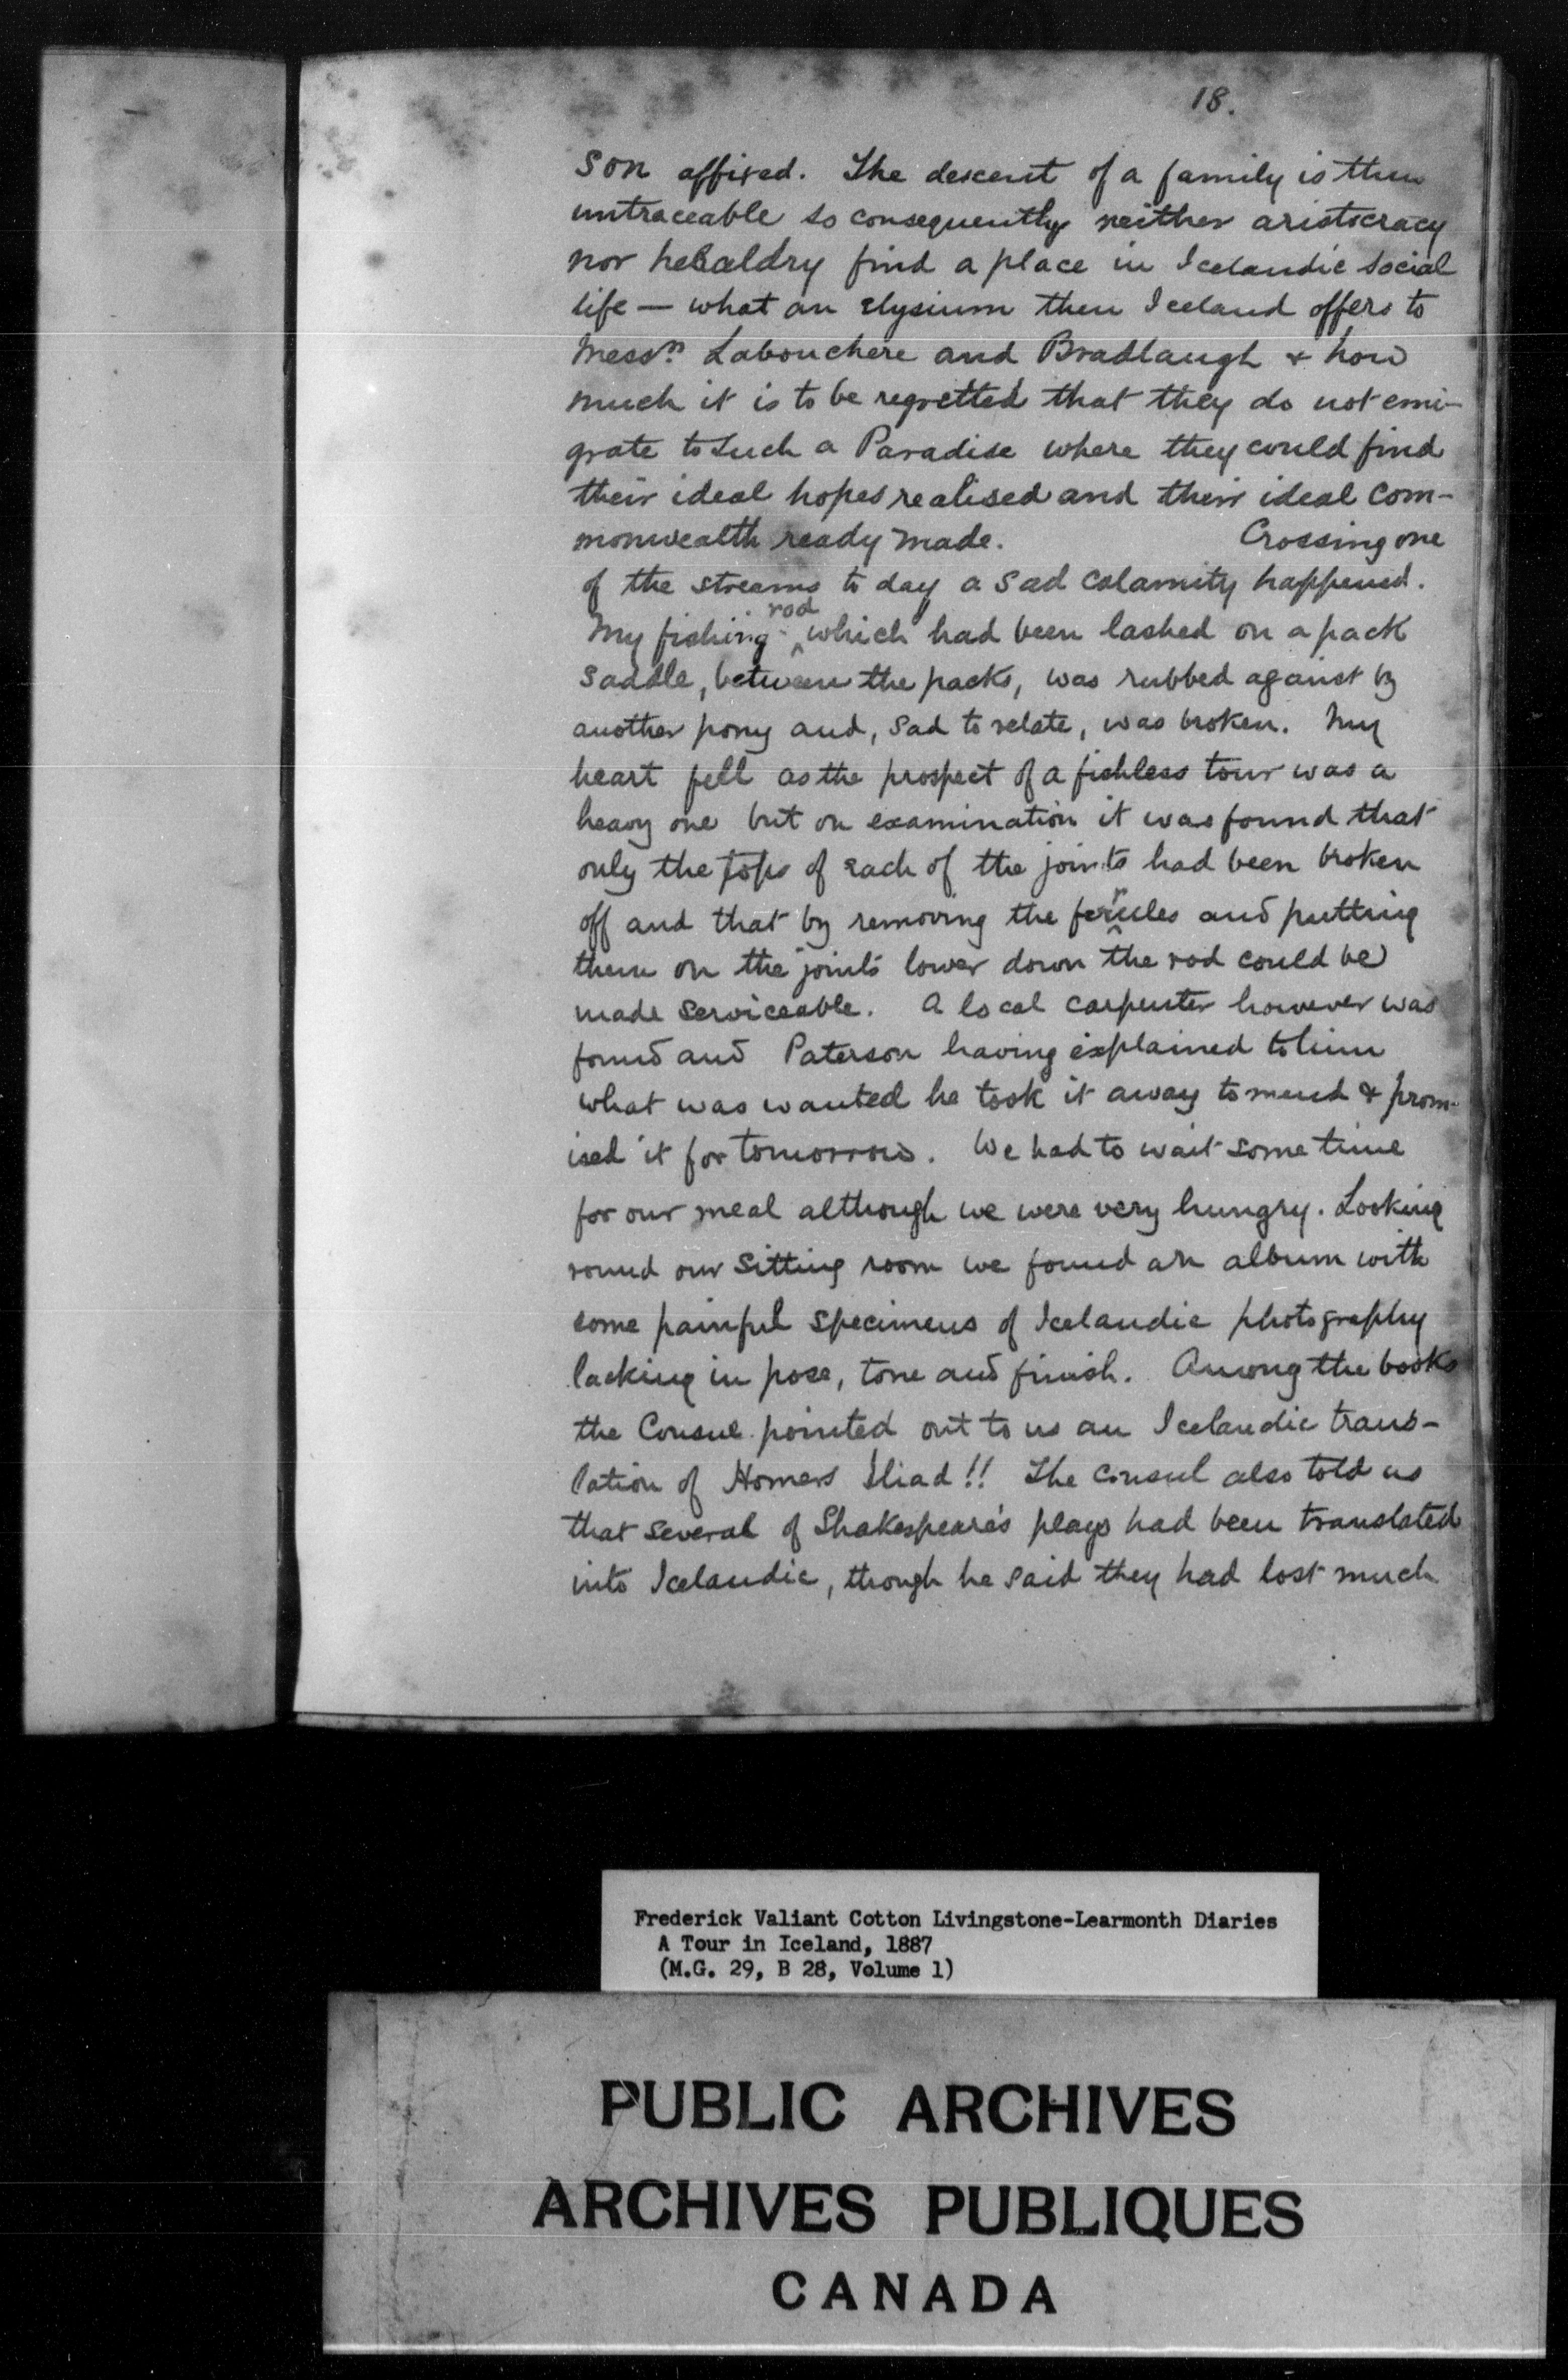 18.
son affixed. The descent of a family is then
untraceable so consequently neither aristocracy
nor heraldry find a place in Icelandic social
life — what an elysium then Iceland offers to
Messrs Labouchere and Bradlaugh & how
much it is to be regretted that they do not emi-
grate to such a Paradise where they could find
their ideal hopes realised and their ideal com-
monwealth ready made. Crossing one
of the streams to day a sad calamity happened.
My fishing-rod which had been lashed on a pack
saddle, between the packs, was rubbed against by
another pony and, sad to relate, was broken. My
heart fell as the prospect of a fishless tour was a
heavy one but on examination it was found that
only the tops of each of the joints had been broken
off and that by removing the ferrules and putting
them on the joints lower down the rod could be
made serviceable. A local carpenter however was
found and Paterson having explained to him
what was wanted he took it away to mend & prom-
ised it for tomorrow. We had to wait some time
for our meal although we were very hungry. Looking
round our sitting room we found an album with
some painful specimens of Icelandic photography
lacking in pose, tone and finish. Among the books
the Consul pointed out to us an Icelandic trans-
lation of Homers Iliad!! The Consul also told us
that several of Shakespeare's plays had been translated
into Icelandic, though he said they had lost much
Frederick Valiant Cotton Livingstone-Learmonth Diaries
A Tour in Iceland, 1887
(M.G. 29, B 28, Volume 1)
PUBLIC ARCHIVES
ARCHIVES PUBLIQUES
CANADA